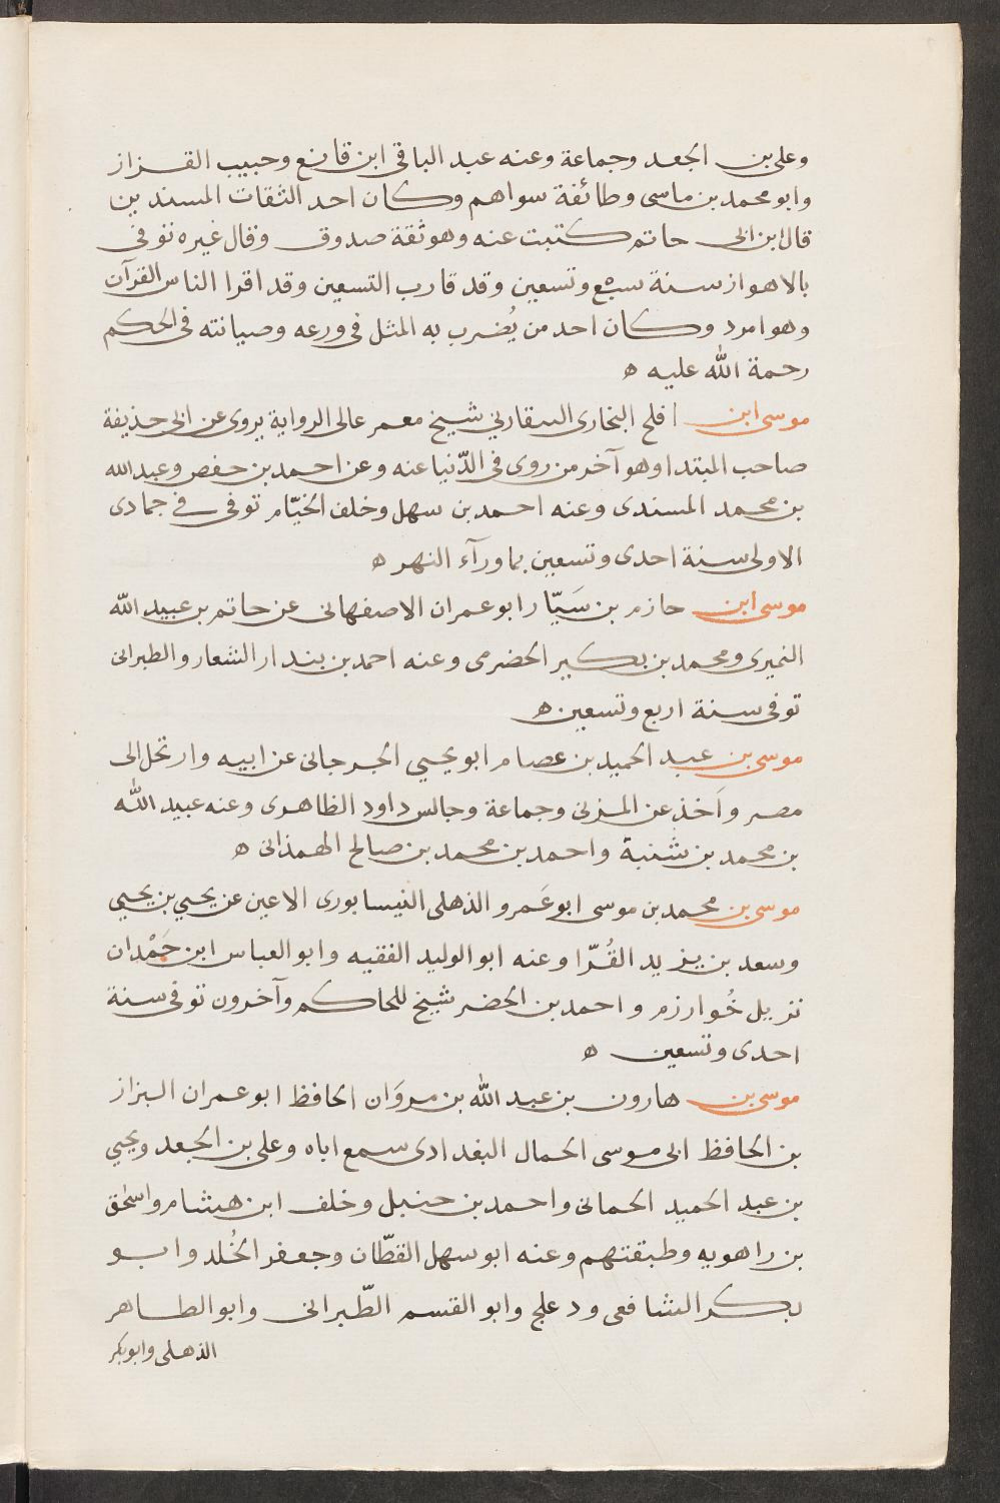 وعلى بن الجعد وجماعة وعنه عبد الباقى ابن قانع وحبيب القزاز
وابو محمد بن ماسى وطائفة سواهم وكان احد الثقات المسندين
قال ابن ابى حاتم كتبت عنه وهو ثقة صدوق وقال غيره توفى
بالاهواز سنة سبع وتسعين وقد قارب التسعين وقد اقرا الناس القرآن
وهو امرد وكان احد من يُضرب به المثل فى ورعه وصيانته فى الحكم
رحمة الله عليه ه
موسى ابن افلح البخارى السقارنى شيخ معمر عالى الرواية يروى عن ابى حذيفة
صاحب المبتدا وهو آخر من روى فى الدّنيا عنه وعن احمد بن حفص وعبد الله
بن محمد المسندى وعنه احمد بن سهل وخلف الخيّام توفى فى جمادى
الاولى سنة احدى وتسعين بما ورآء النهر ه
موسى ابن حازم بن سَيّار ابو عمران الاصفهانى عن حاتم بن عبيد الله
النميرى ومحمد بن بكير الحضرمى وعنه احمد بن بندار الشعار والطبرانى
توفى سنة اربع وتسعين ه
موسى بن عبد الحميد بن عصام ابو يحيى الجرجانى عن ابيه وارتحل الى
مصر وآخذ عن المزنى وجماعة وجالس داود الظاهرى وعنه عبيد الله
بن محمد بن شنبة واحمد بن محمد بن صالح الهمذانى ه
موسى بن محمد بن موسى ابو عَمرو الذهلى النيسابورى الاعين عن يحيى بن يحيى
وسعد بن يزيد القُرّا وعنه ابو الوليد الفقيه وابو العباس ابن حَمْدان
نزيل خُوارزم واحمد بن الخضر شيخ للحاكم وآخرون توفى سنة
احدى وتسعين ه
موسى بن هارون بن عبد الله بن مروَان الحافظ ابو عمران البزاز
بن الحافظ ابى موسى الحمال البغدادى سمع اباه وعلى بن الجعد ويحيى
بن عبد الحميد الحمانى واحمد بن حنبل وخلف ابن هشام واسحٰق
بن راهويه وطبقتهم وعنه ابو سهل القطّان وجعفر الخُلد وابو
بكر الشافعى ودعلج وابو القسم الطّبرانى وابو الطاهر
الذهلى وابو بكر